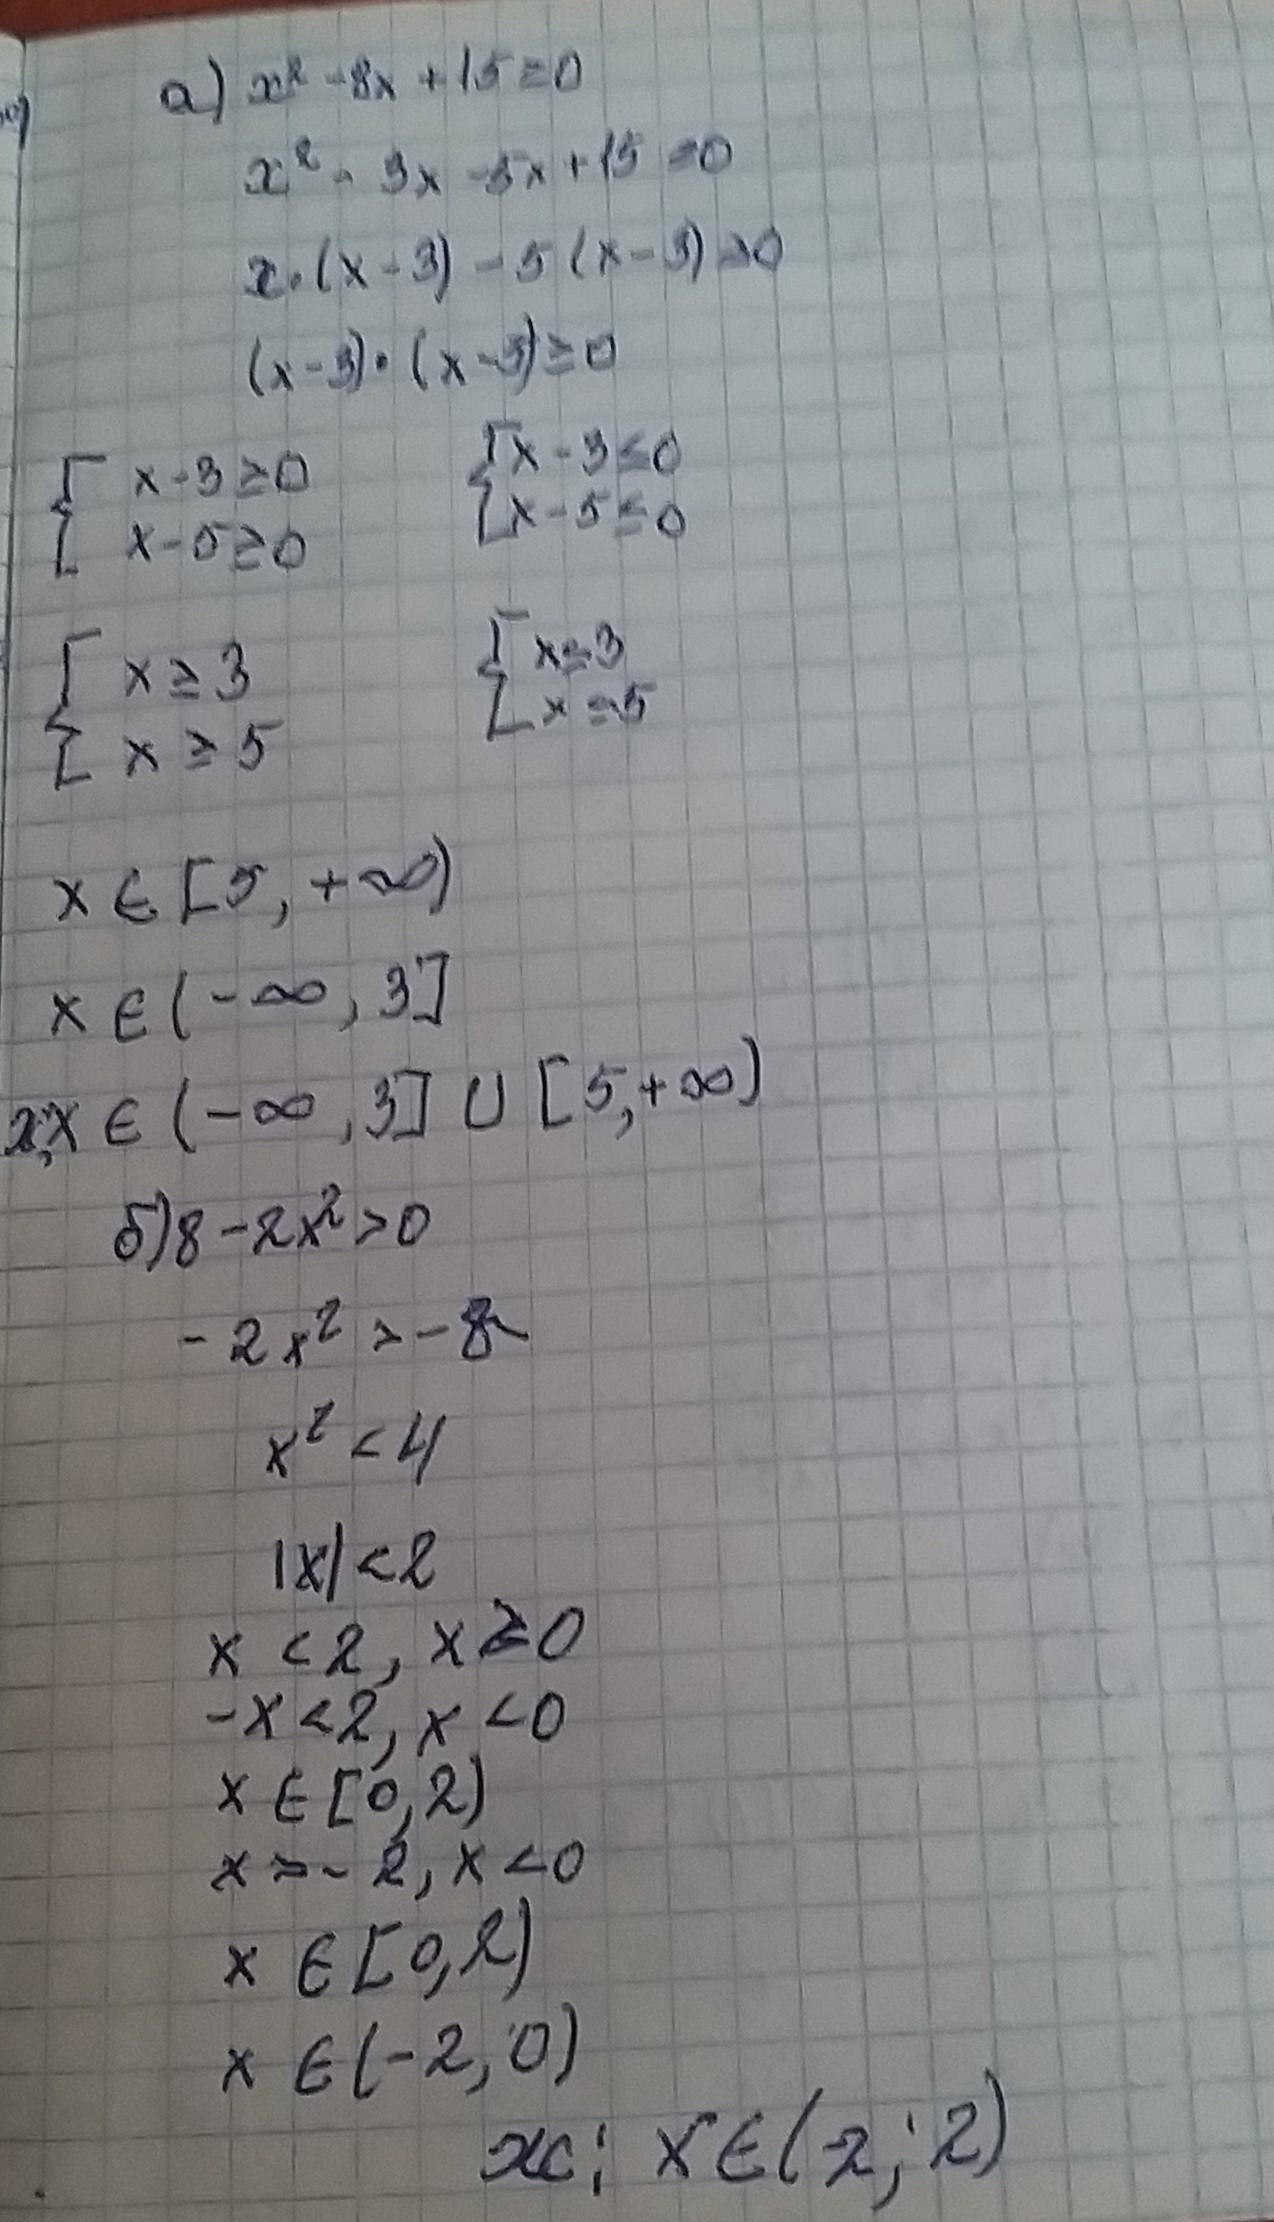 а) x² - 8x + 15 ≥ 0
x² - 3x - 5x + 15 ≥ 0
x·(x - 3) - 5(x - 3) ≥ 0
(x - 3)·(x - 5) ≥ 0
{ x - 3 ≥ 0
x - 5 ≥ 0
{ x - 3 ≤ 0
x - 5 ≤ 0
{ x ≥ 3
x ≥ 5
{ x ≤ 3
x ≤ 5
x ∈ [5, +∞)
x ∈ (-∞, 3]
ж; x ∈ (-∞, 3] ∪ [5, +∞)
б) 8 - 2x² > 0
-2x² > -8
x² < 4
|x| < 2
x < 2, x ≥ 0
-x < 2, x < 0
x ∈ [0, 2)
x > -2, x < 0
x ∈ [0, 2)
x ∈ (-2, 0)
ж; x ∈ (-2; 2)